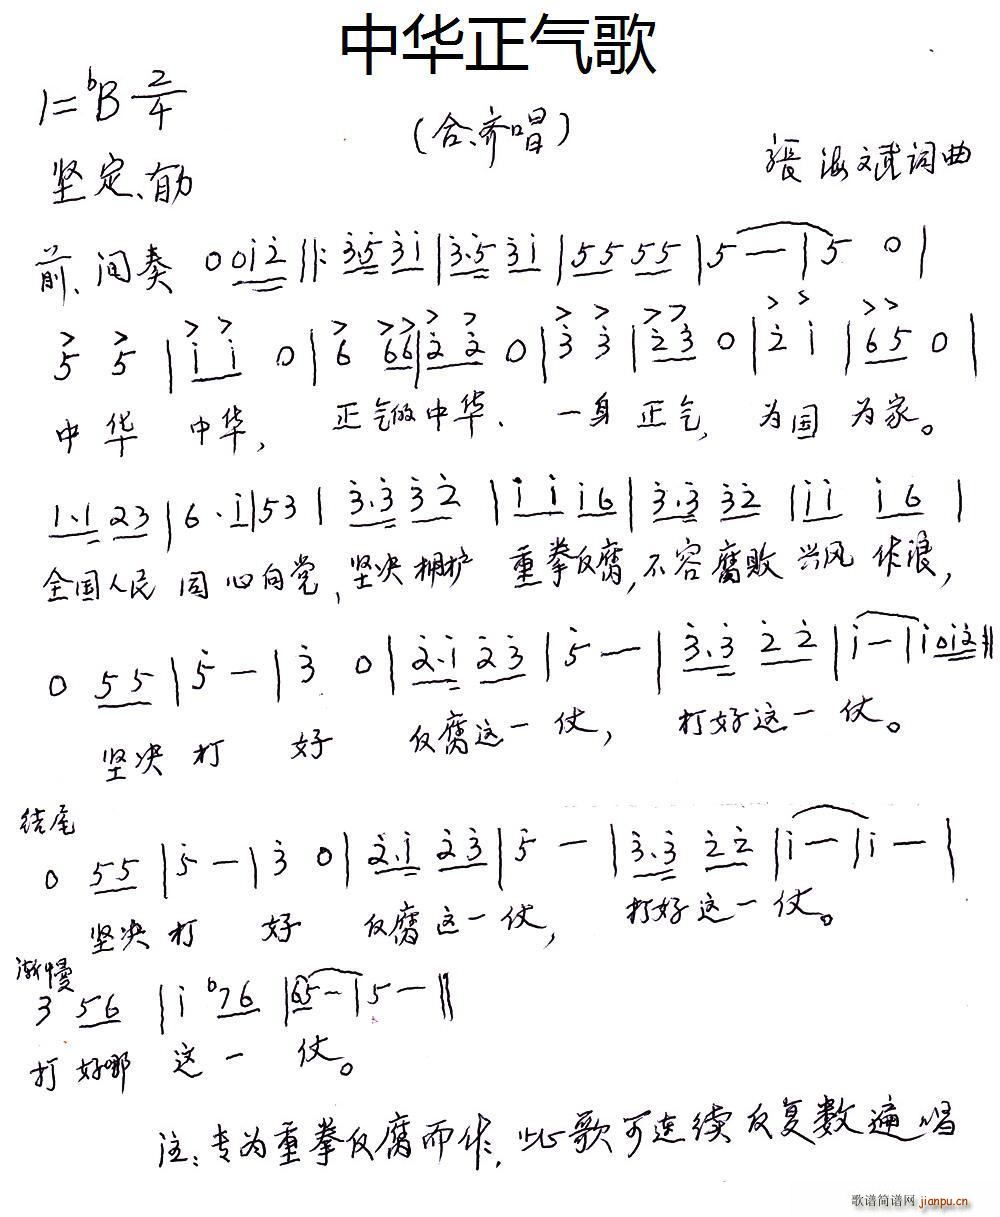 中华正气歌
1=ᵇB 2/4
(合、齐唱)
坚定、有力
張海斌词曲
前、间奏 0 0 0 i 2 ‖: 3·5 3 i | 3·5 3 i | 5 5 5 5 | 5 — | 5 0 |
5 5 | i i 0 | 6 6 6 | 2 2 0 | 3 3 | 2 3 0 | 2 i | 6 5 0 |
中华 中华, 正气的中华、一身正气, 为国 为家。
1·1 2 3 | 6·i | 5 3 | 3·3 3 2 | i i i 6 | 3·3 3 2 | i i i 6 |
全国人民 同心向党, 坚决拥护 重拳反腐, 不容腐败 兴风 作浪,
0 5 5 | 5 — | 3 0 | 2·i 2 3 | 5 — | 3·3 2 2 | i — | i 0 i 2 :‖
坚决 打 好 反腐这一仗, 打好这一仗。
结尾
0 5 5 | 5 — | 3 0 | 2·i 2 3 | 5 — | 3·3 2 2 | i — | i — |
坚决 打 好 反腐这一仗, 打好这一仗。
渐慢
3 5 6 | i ᵇ7 6 | 6 5 — | 5 — ‖
打 好哪 这一 仗。
注:专为重拳反腐而作,此歌可连续反复数遍唱
歌谱简谱网 jianpu.cn